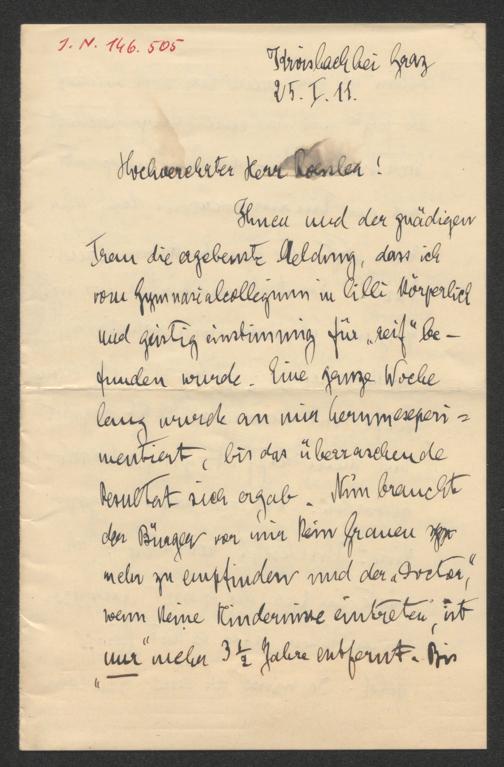 J. N. 146.505
Kroisbach bei Graz
25. I. 11.
Hochverehrter Herr Roessler!
Ihnen und der gnädigen
Frau die ergebenste Meldung, dass ich
vom Gymnasialcollegium in Cilli körperlich
und geistig einstimmig für „reif“ be-
funden wurde. Eine ganze Woche
lang wurde an mir herumexperi=
mentiert, bis das überraschende
Resultat sich ergab. Nun braucht
der Bürger vor mir kein Grauen
mehr zu empfinden und der „Doctor“,
wenn keine Hindernisse eintreten, ist
„nur“ mehr 3 1/2 Jahre entfernt. Bis